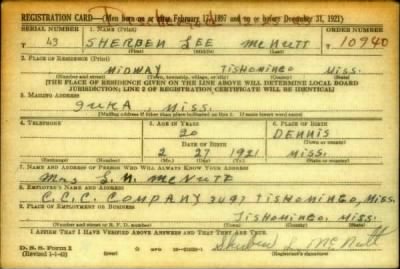 REGISTRATION CARD—(Men born on or after February 17, 1897 and on or before December 31, 1921)
SERIAL NUMBER 1. NAME (Print) ORDER NUMBER
T 43 SHERBEN LEE McNUTT T 10940
(First) (Middle) (Last)
2. PLACE OF RESIDENCE (Print)
MIDWAY TISHOMINGO MISS.
(Number and street) (Town, township, village, or city) (County) (State)
[THE PLACE OF RESIDENCE GIVEN ON THE LINE ABOVE WILL DETERMINE LOCAL BOARD
JURISDICTION; LINE 2 OF REGISTRATION CERTIFICATE WILL BE IDENTICAL]
3. MAILING ADDRESS
IUKA, MISS.
[Mailing address if other than place indicated on line 2. If same insert word same]
4. TELEPHONE 5. AGE IN YEARS 6. PLACE OF BIRTH
20 DENNIS
DATE OF BIRTH (Town or county)
2 27 1921 MISS.
(Exchange) (Number) (Mo.) (Day) (Yr.) (State or country)
7. NAME AND ADDRESS OF PERSON WHO WILL ALWAYS KNOW YOUR ADDRESS
Mrs McNUTT
8. EMPLOYER'S NAME AND ADDRESS
C.C.C. COMPANY TISHOMINGO, MISS.
9. PLACE OF EMPLOYMENT OR BUSINESS
TISHOMINGO, MISS.
(Number and street or R. F. D. number) (Town) (County) (State)
I AFFIRM THAT I HAVE VERIFIED ABOVE ANSWERS AND THAT THEY ARE TRUE.
D. S. S. Form 1
(Revised 1-1-42) (over) L McNutt
(Registrant's signature)